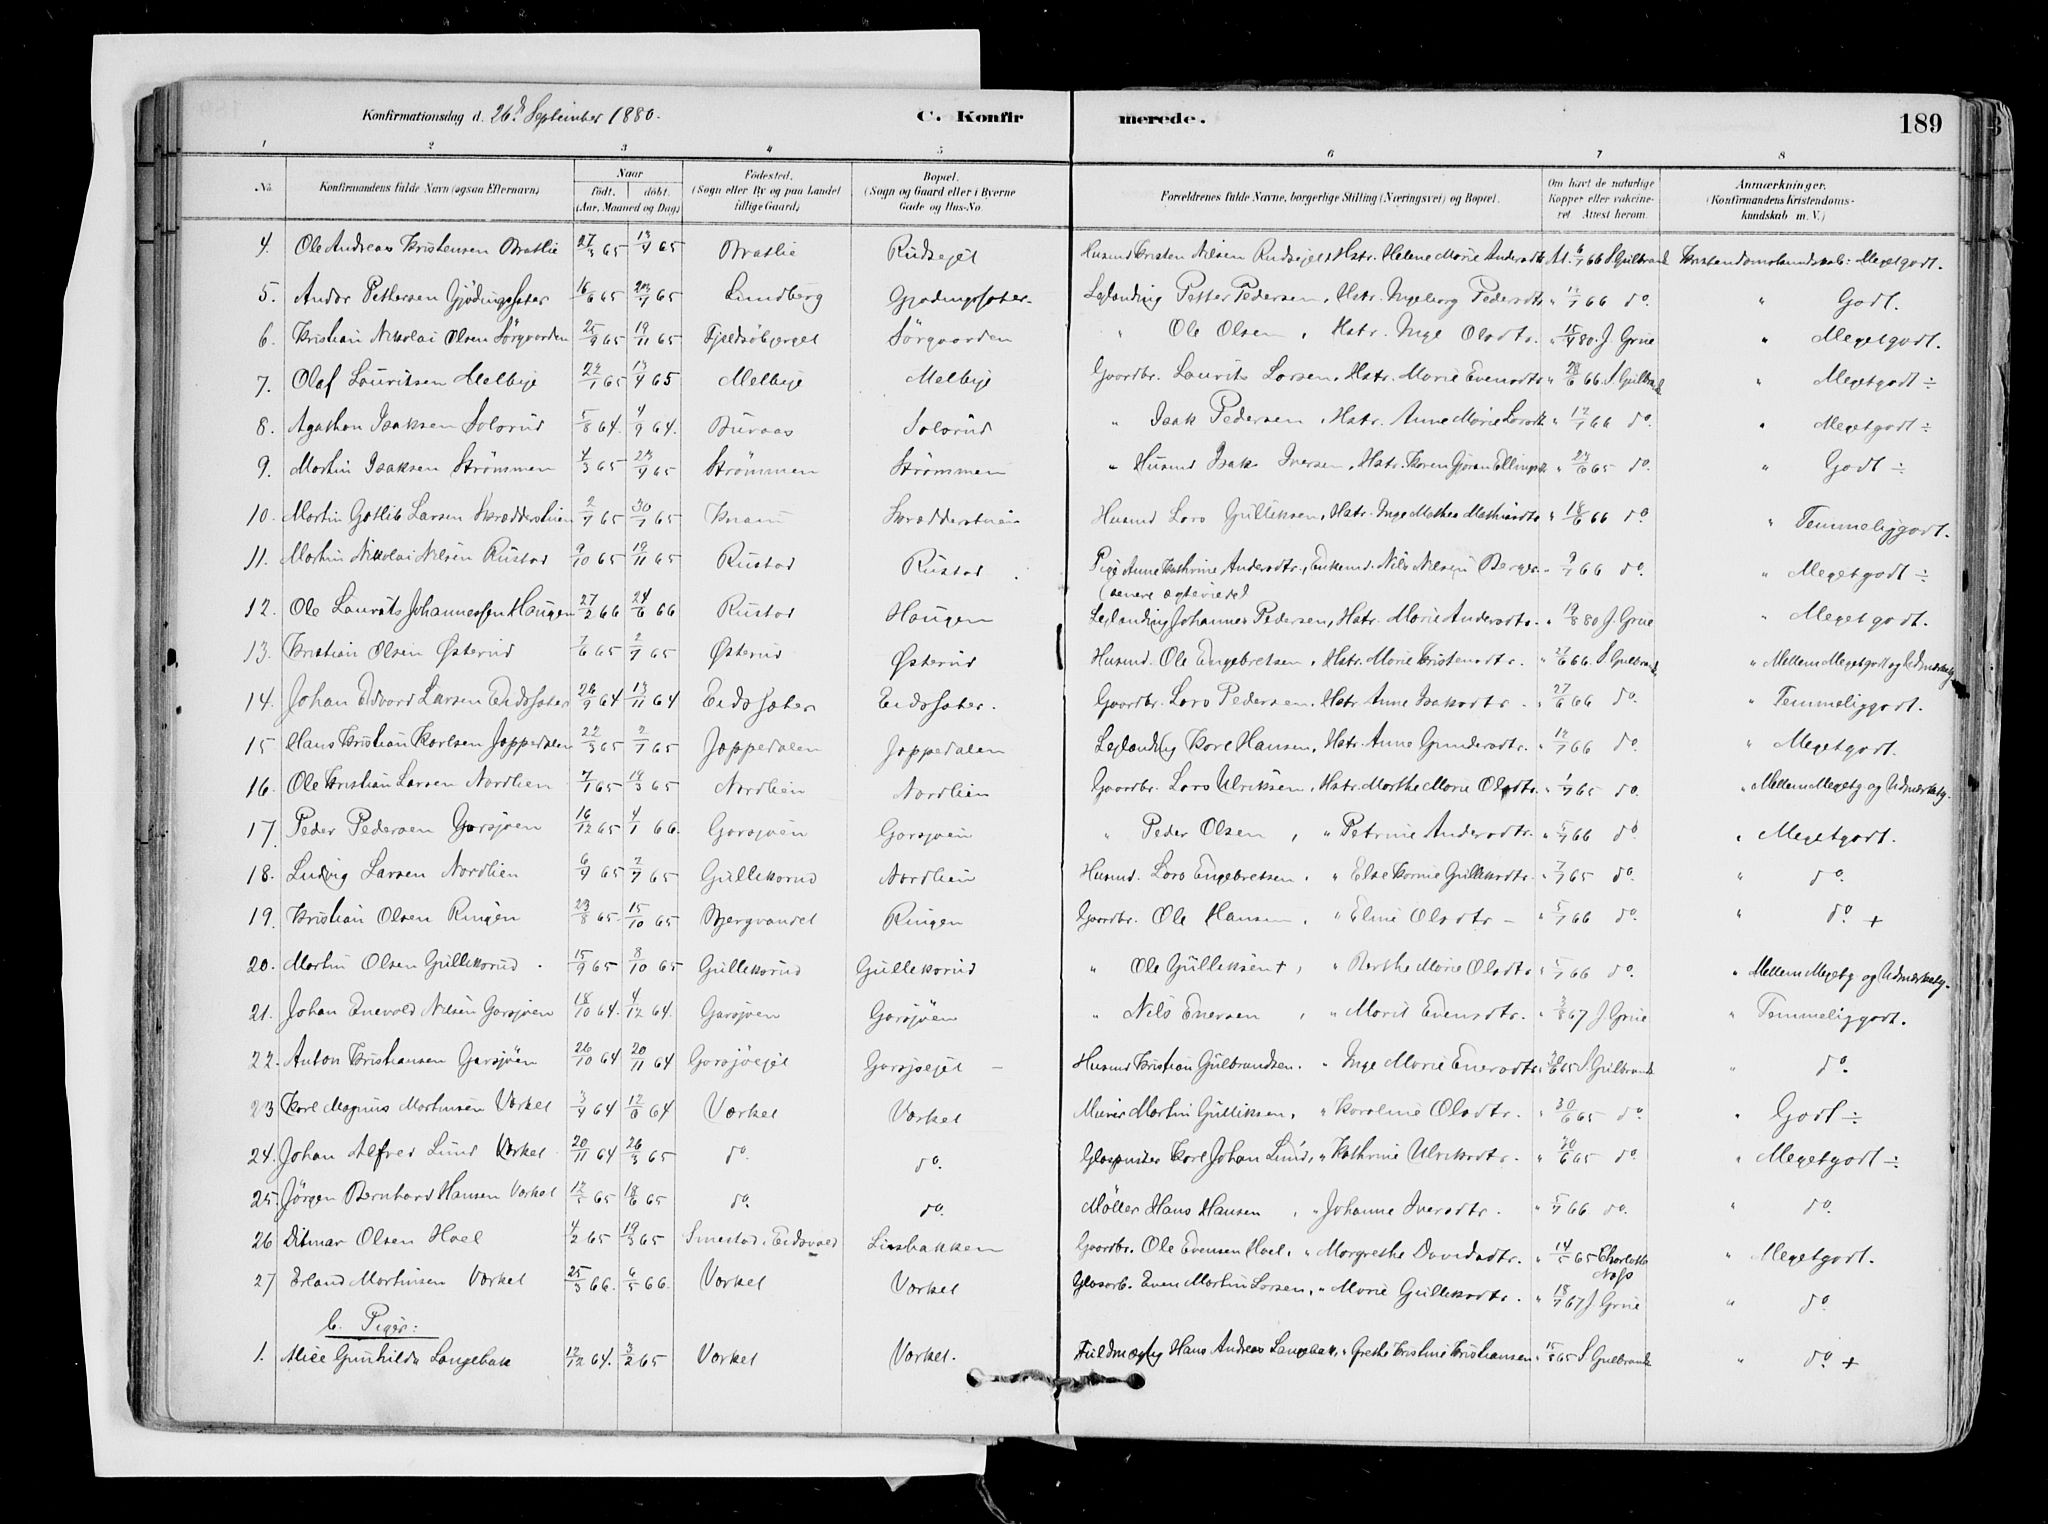 Konfirmationsdag d. 26de September 1880. C. Konfirmerede. 189
1 2 3 4 5 6 7 8
No. Konfirmandens fulde Navn (ogsaa Efternavn) Naar født. døbt. (Aar, Maaned og Dag) Fødested. (Sogn eller By og paa Landet tillige Gaard) Bopæl. (Sogn og Gaard eller i Byerne Gade og Hus-No. Forældrenes fulde Navne, borgerlige Stilling (Næringsvei) og Bopæl. Om havt de naturlige Kopper eller vaccineret Attest herom. Anmærkninger. (Konfirmandens Kristendomskundskab m. V.)
4. Ole Andreas Kristensen Bratlie 27/3 65 13/4 65 Bratlie Rudsejet Husmd Kristen Nilsen Rudsejet, Hstr. Helene Marie Andersdtr At. 6/7 66 S. Gulbrands Kristendomskundskab: Megetgodt.
5. Andor Pettersen Gjødingsæter 16/6 65 23/7 65 Lundberg Gjødingsæter. Leilænding Petter Pedersen, Hstr. Ingeborg Pedersdtr " 12/7 66 do. " Godt.
6. Kristian Nikolai Olsen Sörgaarden 25/9 65 19/11 65 Fjeldsöbjerget Sörgaarden " Ole Olsen, Hstr. Inge Olsdtr. " 15/9 80 J. Grue " Megetgodt.
7. Olaf Lauritsen Melbye 22/1 65 13/4 65 Melbye Melbye Gaardbr. Laurits Larsen, Hstr. Marie Evensdtr " 28/6 66 S. Gulbrands " Megetgodt ÷
8. Agathon Isaksen Solsrud 5/8 64. 4/9 64. Buraas Solsrud " Isak Pedersen, Hstr. Anne Marie Larsdtr. " 12/7 66 do. " Megetgodt ÷
9. Martin Isaksen Strömmen 4/3 65 23/4 65 Strömmen Strömmen " Husmd Isak Iversen, Hstr. Karen Gjøran Ellingsdtr " 23/6 65 do. " Godt ÷
10. Martin Gotlib Larsen Skrædderstuen 2/7 65 30/7 65 Knain Skrædderstuen Husmd Lars Gulliksen, Hstr. Inge Mathea Mathiasdtr " 18/6 66 do " Temmeliggodt.
11. Martin Nikolai Nilsen Rustad 9/10 65 19/11 65 Rustad Rustad Pige Anne Kathrine Andersdtr., Enkemd. Nils Nilsen Berger " 9/7 66 do. " Megetgodt ÷
(senere ægteviede)
12. Ole Laurits Johannessen Haugen 27/2 66 24/6 66 Rustad Haugen Leilænding Johannes Pedersen, Hstr. Marie Andersdtr. " 19/8 80 J. Grue " Megetgodt.
13. Kristian Olsen Østerud 7/6 65 2/7 65 Østerud Østerud Husmd. Ole Engebretsen, Hstr. Marie Kristensdtr. " 2/6 66. S. Gulbrands " Mellem Megetgodt og Udmærketg.
14. Johan Edvard Larsen Eidssæter 26/9 64 13/11 64 Eidssæter Eidssæter. Gaardbr. Lars Pedersen, Hstr. Anne Isaksdtr. " 27/6 66 do. " Temmeliggodt.
15 Hans Kristian Karlsen Jøppedalen 22/3 65 2/7 65 Jøppedalen Jøppedalen Leilænding Karl Hansen, Hstr. Anne Gundersdtr. " 12/7 66 do. " Megetgodt.
16. Ole Kristian Larsen Nordlien 7/1 65 19/3 65 Nordlien Nordlien Gaardbr. Lars Ulriksen, Hstr. Marthe Marie Olsdtr. " 1/7 65 do. " Mellem Megetg og Udmærketg.
17. Peder Pedersen Garsjøen 16/12 65 4/1 66. Garsjøen Garsjøen " Peder Olsen, " Petrine Andersdtr. " 5/7 66 do " Megetgodt.
18. Ludvig Larsen Nordlien 6/4 65 2/7 65 Gulliksrud Nordlien Husmd. Lars Engebretsen, " Else Karine Gulliksdtr. " 7/7 65 do. " do.
19. Kristian Olsen Ringen 23/8 65. 15/10 65 Bjergvandet Ringen Gaardbr. Ole Hansen, " Eline Olsdtr – " 5/7 66 do. " do. +
20. Martin Olsen Gulliksrud. 15/9 65 8/10 65 Gulliksrud Gulliksrud " Ole Gulliksen +, " Berthe Marie Olsdtr. " 5/7 66 do. " Mellem Megetg og Udmærketg.
21. Johan Enevold Nilsen Garsjøen 18/10 64. 4/12 64. Garsjøen Garsjøen " Nils Enersen, " Marit Evensdtr. " 3/8 67 J. Grue " Temmeliggodt.
22. Anton Kristiansen Garsjøen 26/10 64 20/11 64 Garsjøejet Garsjøejet – Husmd Kristian Gulbrandsen. " Inge Marie Enersdtr. " 65 S. Gulbrands " do.
23 Karl Magnus Martinsen Værket 3/4 64 12/6 64 Værket Værket Murer Martin Gulliksen, " Karoline Olsdtr. " 30/6 65 do. " Godt ÷
24. Johan Alfred Lund Værket 20/11 64 26/3 65 do. do. Glaspuster Karl Johan Lund, " Kathrine Ulriksdtr. " 30/6 65 do. " Megetgodt ÷
25. Jörgen Bernhard Hansen Værket 12/5 65 18/6 65 do. do. Møller Hans Hansen, " Johanne Iversdtr. " 5/7 66 do. " do.
26 Ditmar Olsen Hoel 4/2 65 19/3 65 Smestad, Eidsvold Lisbakken Gaardbr. Ole Evensen Hoel, " Margrethe Davidsdtr. " 14/5 65 Charlotte Næss " Megetgodt.
27 Erland Martinsen Værket 25/3 66. 6/5 66. Værket Værket Glasarb. Even Martin Larsen, " Marie Gulliksdtr. " 18/7 67 J. Grue " do.
b. Piger:
1. Alice Gunhilda Langebak 12/12 64. 3/2 65 Værket Værket. Fuldmægtig Hans Andreas Langebak, " Grethe Kristine Kristiansen " 15/8 65 S. Gulbrands " do. +